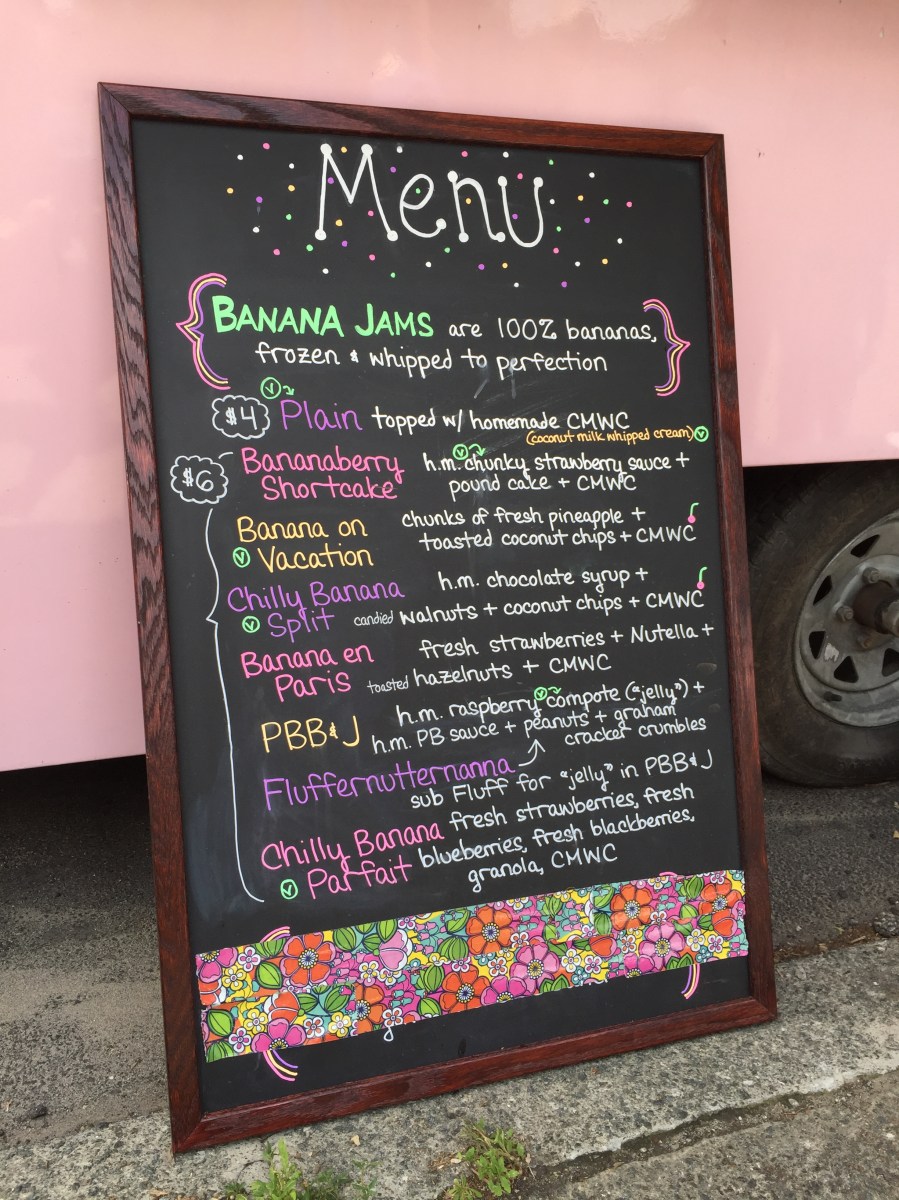 Menu
BANANA JAMS are 100% bananas,
frozen & whipped to perfection
V
$4 Plain topped w/ homemade CMWC
(coconut milk whipped cream) V
$6 Bananaberry h.m. V chunky strawberry sauce +
Shortcake pound cake + CMWC
Banana on chunks of fresh pineapple +
V Vacation toasted coconut chips + CMWC
Chilly Banana h.m. chocolate syrup +
V Split candied walnuts + coconut chips + CMWC
Banana en fresh strawberries + Nutella +
Paris toasted hazelnuts + CMWC
PBB&J h.m. raspberry V compote ("jelly") +
h.m. PB sauce + peanuts + graham
cracker crumbles
Fluffernutternanna
sub Fluff for "jelly" in PBB&J
Chilly Banana fresh strawberries, fresh
V Parfait blueberries, fresh blackberries,
granola, CMWC